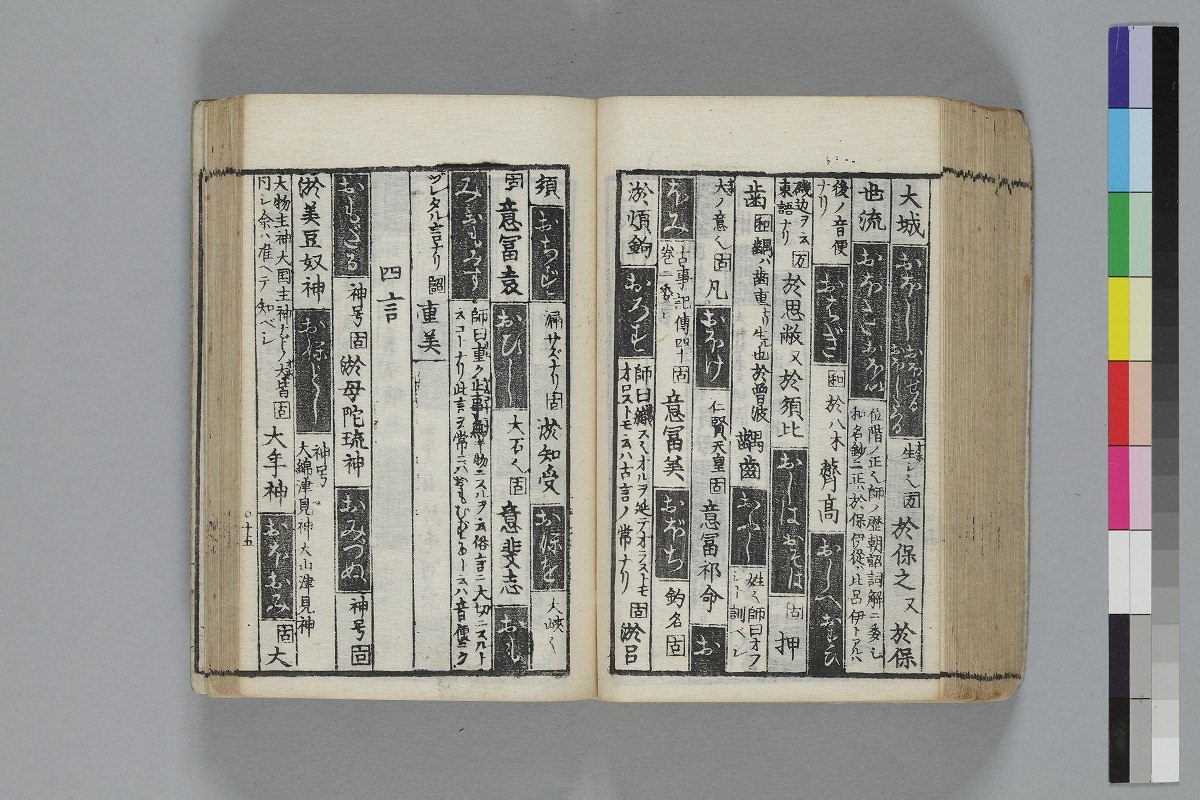 大城 おほし 生し也 固 於保之 又 於保
世流 おほきみほ 位階ノ正也師ノ歴朝詔詞解ニ委シ 和名鈔ニ正ハ於保伊従ハ比呂伊トアルハ
後ノ音便ナリ おはぎ 和 於八木 薺高 おしへ
磯辺ヲ云東語ナリ 万 於思敝 又 於須比 おしは おそは 固 押
歯 和 齵ハ歯重リ生也 於曽波 齵歯 姓也師曰オフシト訓ベシ
大ノ意也 固 凡 おほけ 仁賢天皇 固 意冨祁命 お
ほみ 古事記傳四十巻ニ委シ 固 意冨美 おぢち 釣名 固
淤煩鉤 おろす 師曰織スハオルヲ延テオラストモオロストモ云ハ古言ノ常ナリ 固 淤呂
須 おちず 漏サズナリ 固 淤知受 おほを 大峡也
固 意冨袁 おひし 大石也 固 意斐志 おも
みおもみす 師曰重ク止事無キ物ニスルヲ云俗言ニ大切ニスルト云コトナリ此言ヲ常ニハおもむずるト云ハ音便ニク
ヅレタル言ナリ 詔 重美
四言
おもだる 神号 固 淤母陀琉神 おみづぬ 神号 固
淤美豆奴神 お保とし 神号 大綿津見神大山津見神
大物主神大国主神ナドノ大皆同シ余ハ准ヘテ知ベシ 固 大年神 おほおみ 固 大
十五